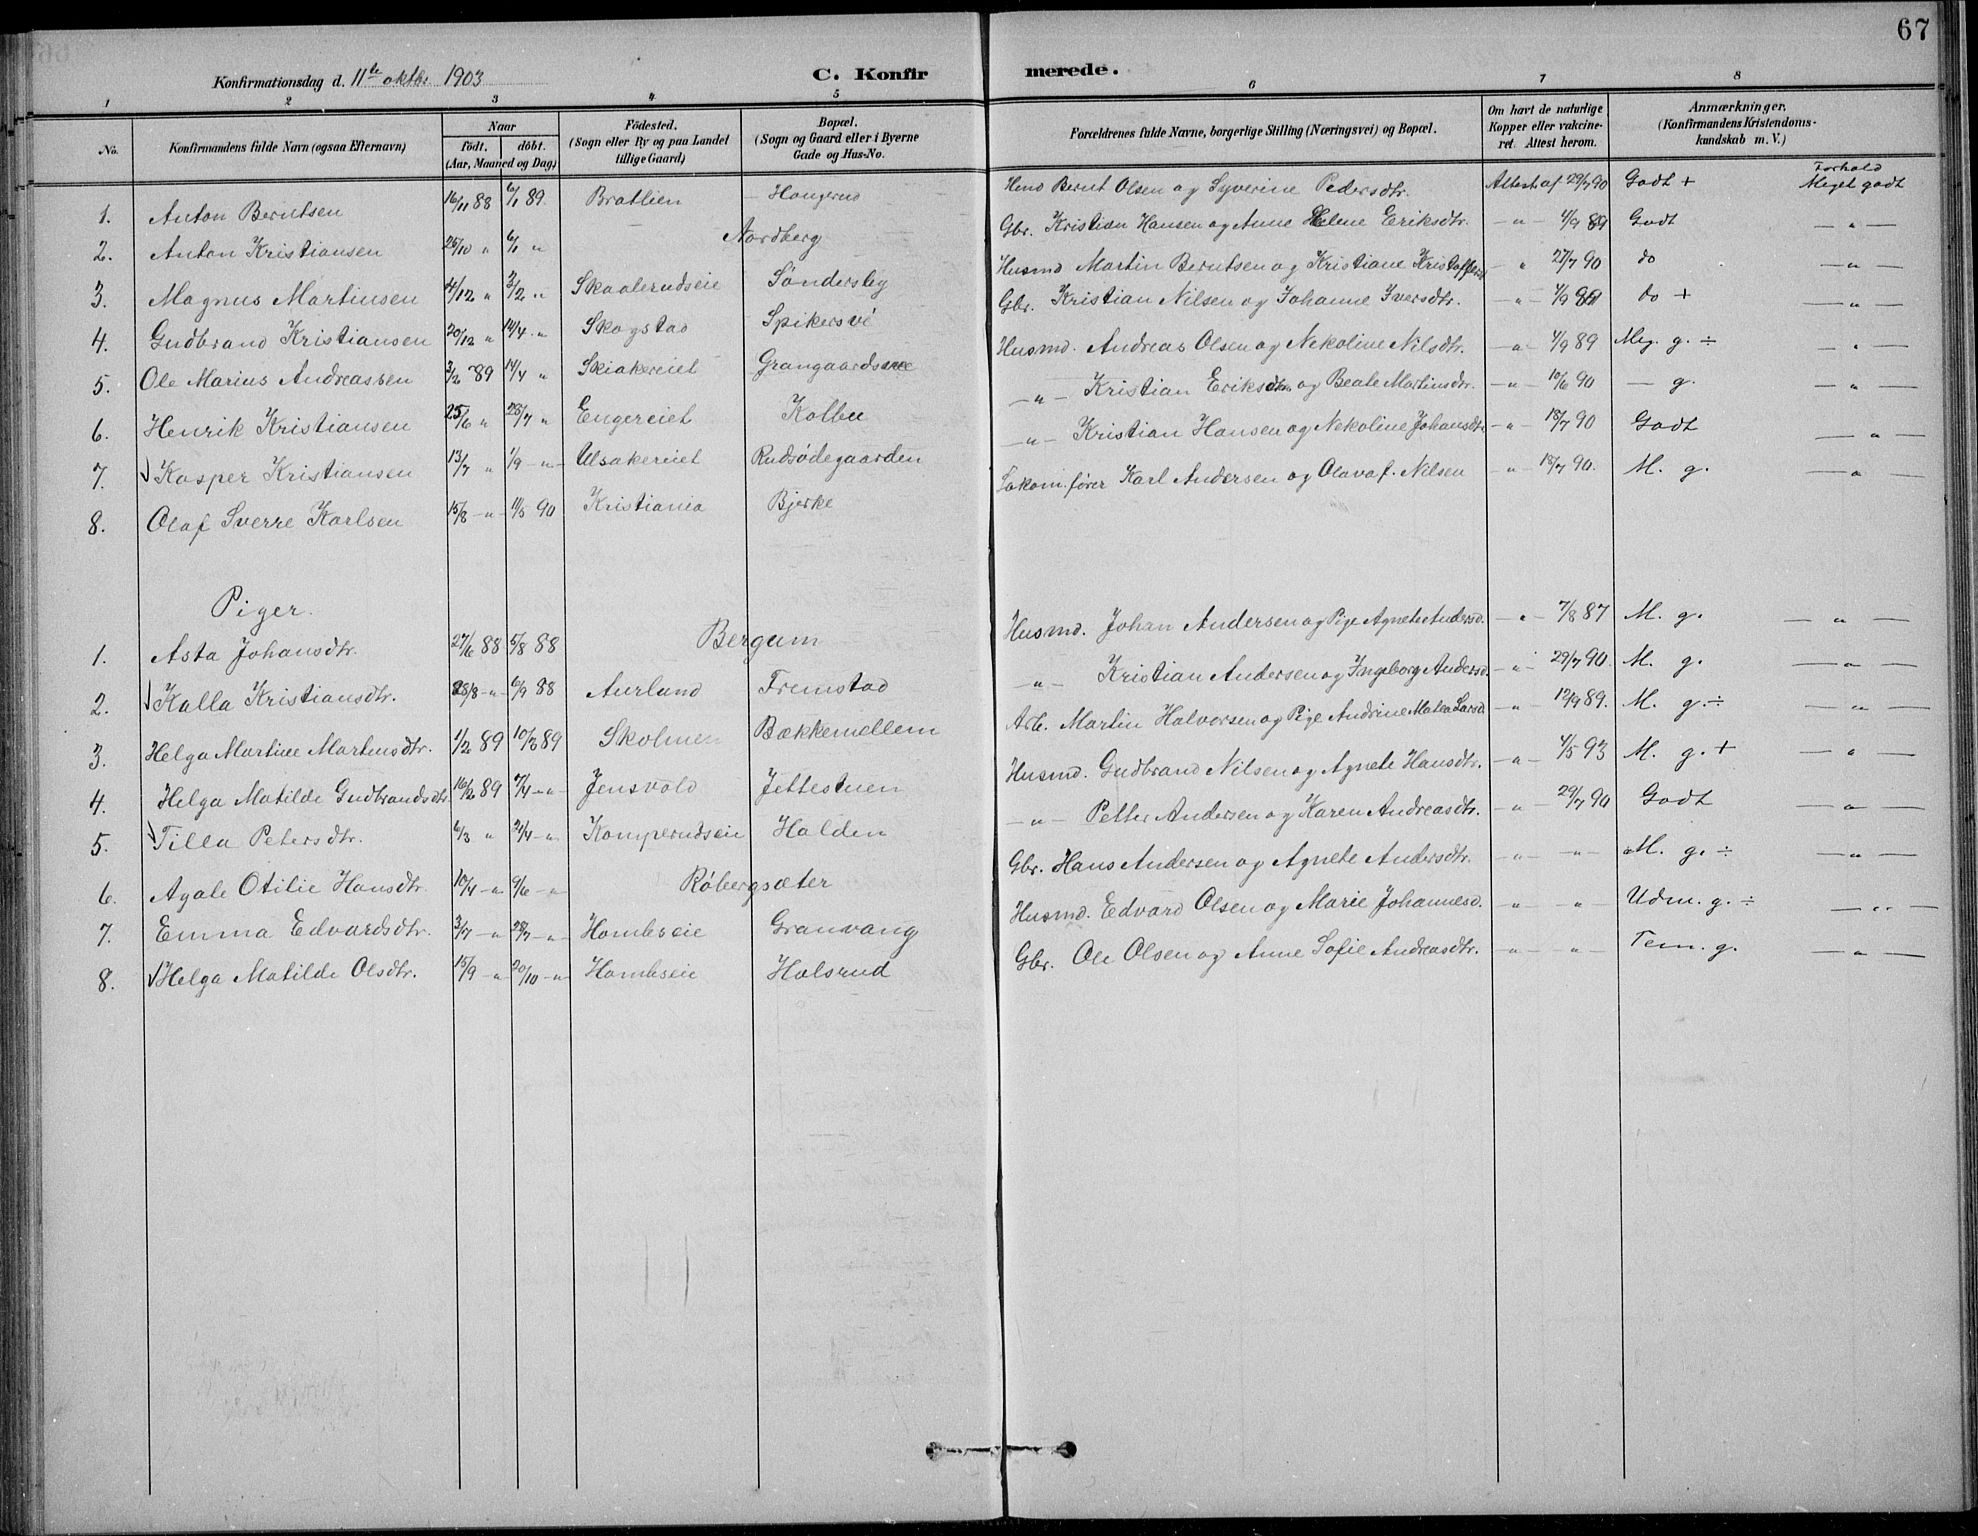 67
Konfirmationsdag d. 11te oktbr. 1903
C. Konfirmerede.
1 2 3 4 5 6 7 8
No. Konfirmandens fulde Navn (ogsaa Efternavn) Naar födt. döbt. (Aar, Maaned og Dag) Födested. (Sogn eller By og paa Landet tillige Gaard) Bopæl. (Sogn og Gaard eller i Byerne Gade og Hus-No. Forældrenes fulde Navne, borgerlige Stilling (Næringsvei) og Bopæl. Om havt de naturlige Kopper eller vakcineret. Attest herom. Anmærkninger. (Konfirmandens Kristendomskundskab m. V.)
Forhold
1. Anton Berntsen 16/11 88 6/1 89. Bratlien Haugerud Bernt Olsen og Syverine Pedersdtr. Attest af 29/7 90 Godt + Meget godt
2. Anton Kristiansen 25/10 " 6/1 " Nordberg Gbr. Kristian Hansen og Anne Helene Eriksdtr. — " — 4/9 89 Godt — " —
3. Magnus Martinsen 4/12 " 3/2 " Skaalerudseie Søndersby Husmd Martin Berntsen og Kristiane " 27/7 90 do — " —
4. Gudbrand Kristiansen 20/12 " 14/4 " Skogstad Spikersvé Gbr. Kristian Nilsen og Johanne Iversdtr. — " — do + — " —
5. Ole Marius Andreassen 3/2 89 14/4 " Skiakereiet Husmd. Andreas Olsen og Nekoline Nilsdtr. — " — 4/9 89 Meg. g. ÷ — " —
6. Henrik Kristiansen 25/6 " 28/7 " Engereiet Kolbu — " — Kristian og Beate Martinsdtr. — " — 10/6 90 — g. — " —
7. √ Kasper Kristiansen 13/7 " 1/9 — " — Ulsakereiet Rudsødegaarden — " — Kristian Hansen og Nekoline Johansdtr — " — 18/7 90 Godt — " —
8. Olaf Sverre Karlsen 15/8 — " — 11/5 90 Kristiania Bjerke Lokom.fører Karl Andersen og Olava f. Nilsen — " — 18/7 90. M. g. — " —
Piger.
1. Asta Johansdtr. 27/6 88 5/8 88 Bergum Husmd. Johan Andersen og Pige Agnete Andersd. — " — 7/8 87 M. g. — " —
2. √ Kalla Kristiansdtr. 28/8 — " — 6/9 88 Aurlund Fremstad — " — Kristian Andersen og Ingeborg Andersd. — " — 29/7 90. M. g. — " —
3. Helga Martine Martinsdtr. 1/2 89 10/3 89 Bækkemellem Arb. Martin Halvorsen og Pige Andrine Matea Larsd. — " — 12/9 89. M. g. ÷ — " —
4. Helga Matilde Gudbrandsdtr 16/2 89 7/4 — " — Jensvold Jettestuen Husmd. Gudbrand Nilsen og Agnete Hansdtr. — " — 4/5 93 M. g. + — " —
5. √ Tilla Petersdtr. 6/3 " 21/4 — " — Komperudseie Halden — " — Petter Andersen og Karen Andreasdtr. — " — 29/7 90 Godt — " —
6. Agate Otilie Hansdtr. 10/4 — " — 9/6 — " — Røbergsæter Gbr. Hans Andersen og Agnete Andersdtr. — " — — " — M. g. ÷ — " —
7. Emma Edvardsdtr. 3/7 — " — 28/7 — " — Hombseie Granvang Husmd. Edvard Olsen og Marie Johannesd. — " — — " — Udm. g. ÷ — " —
8. √ Helga Matilde Olsdtr. 15/9 — " — 20/10 — " — Hombseie Holsrud Gbr. Ole Olsen og Anne Sofie Andreasdtr. — " — — " — Tem. g. — " —